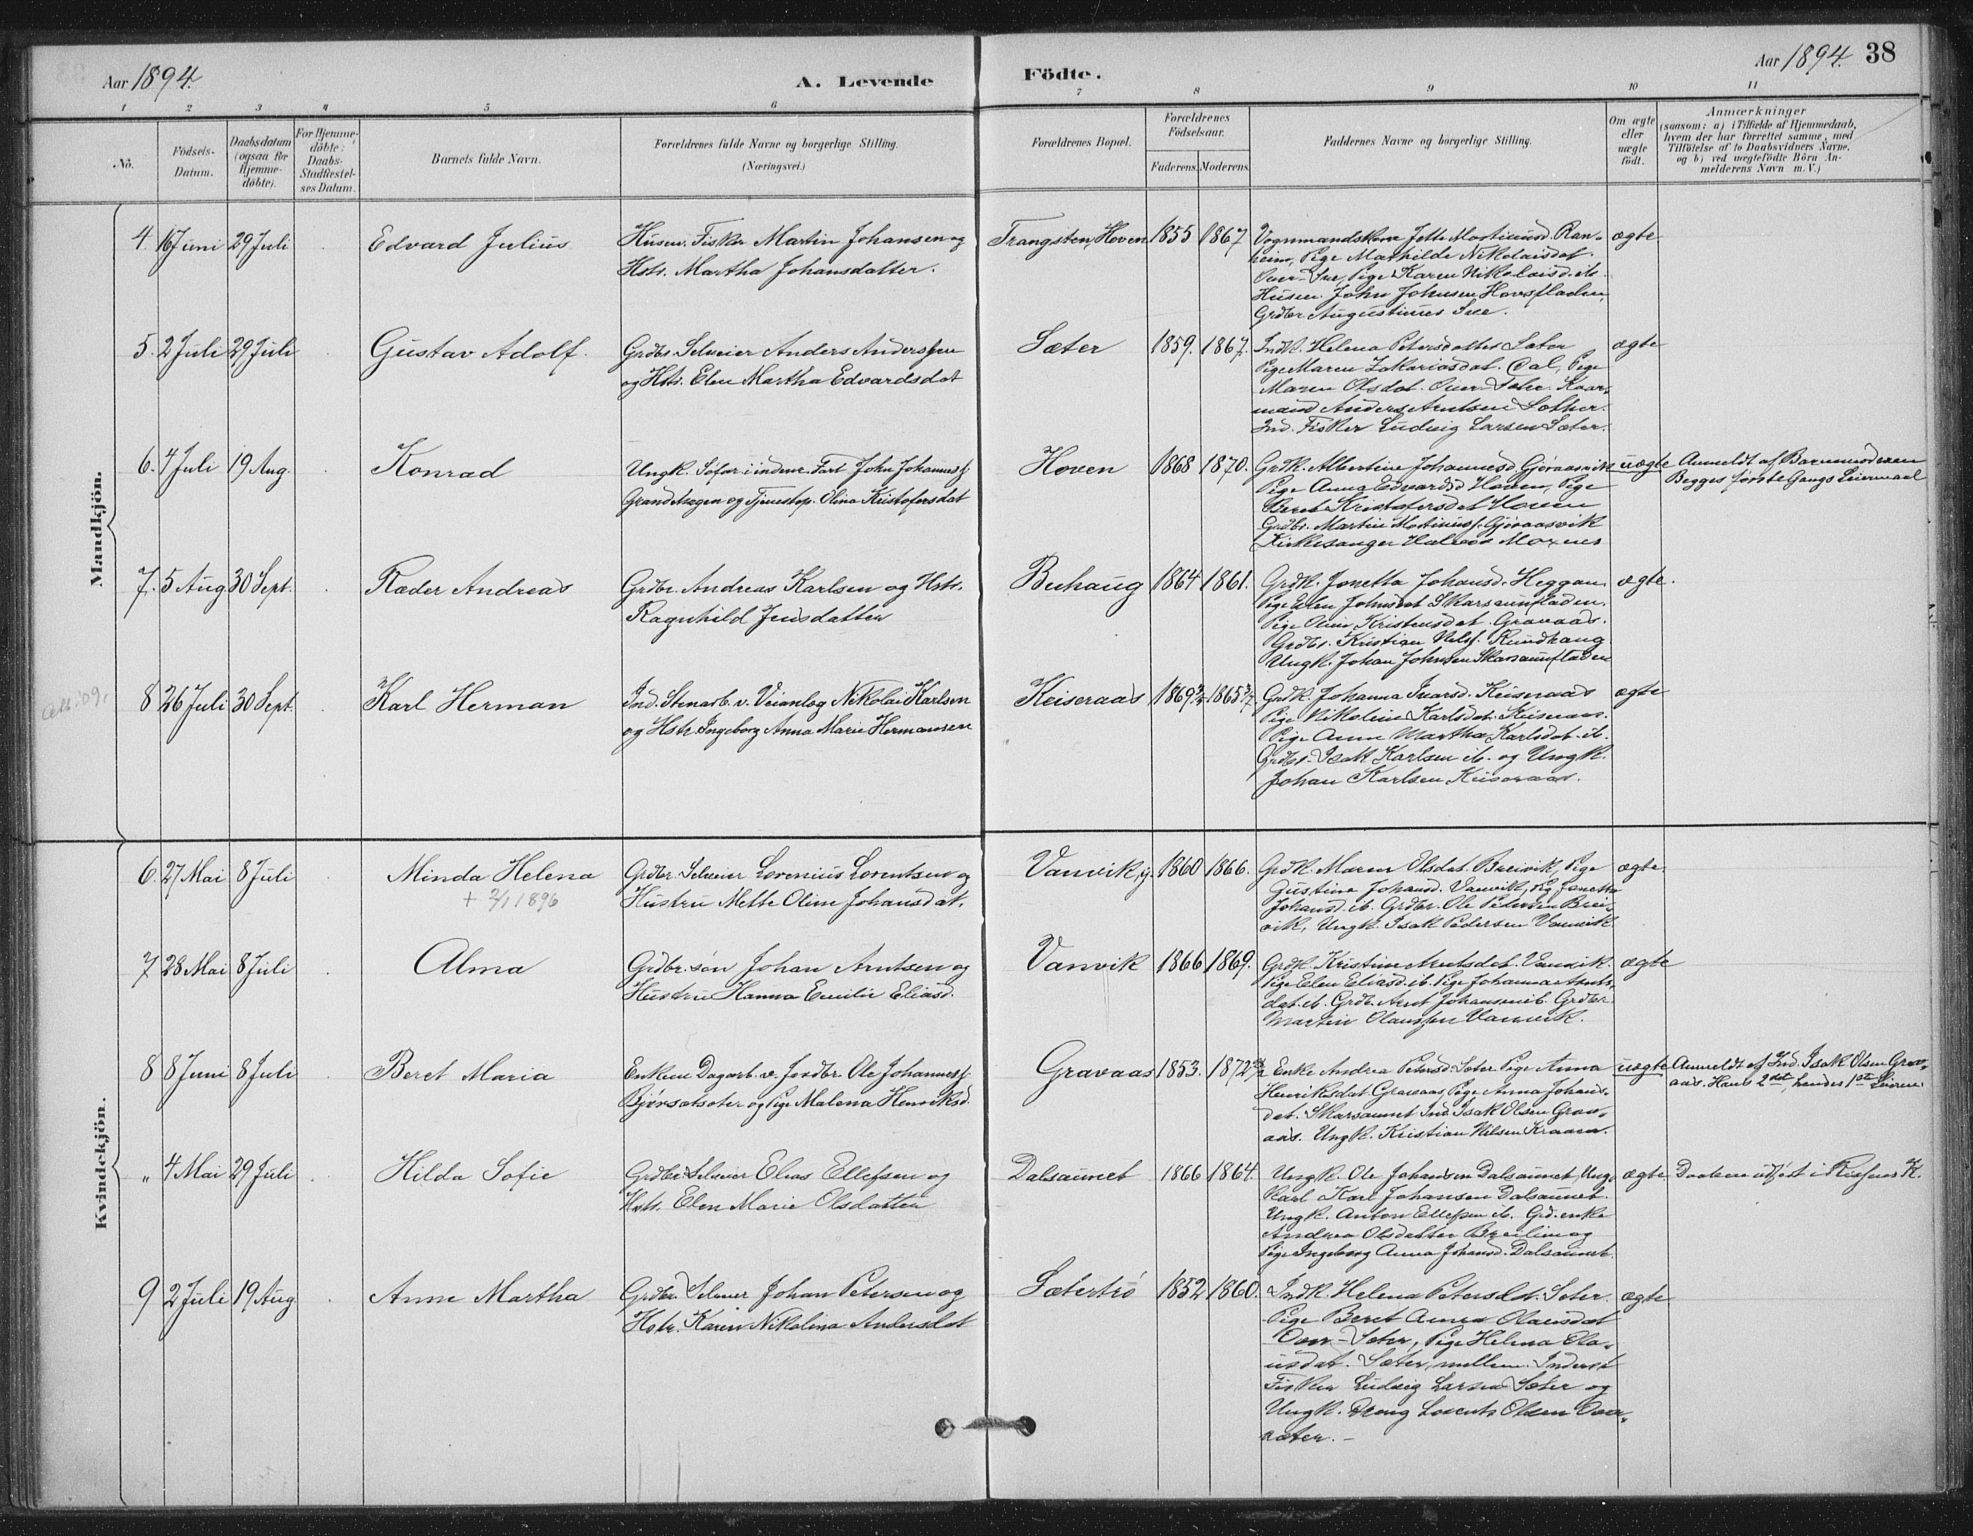 Aar 1894.
A. Levende
Födte.
Aar 1894.
38
1 2 3 4 5 6 7 8 9 10 11
No.
Födsels-
Datum.
Daabsdatum
(ogsaa for
Hjemme-
döbte).
For Hjemme-
döbte:
Daabs-
Stadfæstel-
ses Datum.
Barnets fulde Navn.
Forældrenes fulde Navne og borgerlige Stilling.
(Næringsvei.)
Forældrenes Bopæl.
Forældrenes
Födselsaar.
Faderens. Moderens.
Faddernes Navne og borgerlige Stilling.
Om ægte
eller
uægte
födt.
Anmærkninger
(saasom: a) i Tilfælde af Hjemmedaab,
hvem der har forrettet samme, med
Tilföielse af to Daabsvidners Navne,
og b) ved uægtefödte Börn An-
melderens Navn m. V.)
Mandkjön.
4. 16 Juni 29 Juli Edvard Julius
Husm. Fisker Martin Johansen og
Hstr. Martha Johansdatter.
Trangsten, Hoven 1855 1867
Vognmandskone Jette Martinusd. Ran-
heim, Pige Mathilde Nikolaisdat.
Over-Sve, Pige Karen Nikolaisd. ib.
Husm. John Johnsen Hovsfladen,
Grdbr. Augustinus Sve.
ægte
5. 2 Juli 29 Juli Gustav Adolf.
Grdbr. Selveier Anders Anderssen
og Hstr. Elen Martha Edvardsdat
Sæter 1859. 1867.
Indk. Helena Petersdatter Sæter
Pige Maren Zakariasdat. Dal, Pige
Maren Olsdat. Over-Sæter. Kaar-
mand Anders Arntsen Sæther.
Ind. Fisker Ludvig Larsen Sæter.
ægte
6. 4 Juli 19 Aug. Konrad
Ungk. Sofar i indenr. Fart John Johanness.
Grandehagen og Tjenestep. Olina Kristofersdat
Hoven 1868 1870.
Grdk. Albertine Johannesd Gjöraasvik
Pige Anna Edvardsd Hoven, Pige
Beret Kristofersdat Hoven
Grdbr. Martin Martinuss. Gjöraasvik
Kirkesanger Moxnes
uægte
Anmeldt af Barnemoderen
Begges förste Gangs Leiermaal
7. 5 Aug 30 Sept. Peder Andreas
Grdbr. Andreas Karlsen og Hstr.
Ragnhild Jensdatter
Buhaug 1864 1861.
Grdk. Jonetta Johansd. Heggan
Pige Elen Johnsdat Skarsaunfladen.
Pige Oline Kristensdat. Gravaas.
Grdbr. Kristian Nilss. Rundhaug
Ungk. Johan Johnsen Skarsaunfladen
ægte.
8 26 Juli 30 Sept. Karl Herman
Att. '09.
Ind. Stenarb. v. Veianlæg Nikolai Karlsen
og Hstr. Ingeborg Anna Marie Hermansen
Keiseraas 1869 1865
Grdk. Johanna Ivarsd. Keiseraas
Pige Nikoline Karlsdat. Keiseraas.
Pige Anne Martha Karlsdat. ib.
Grdbr. Isak Karlsen ib. og Ungk.
Johan Karlsen Keiseraas.
ægte
Kvindekjön.
6. 27 Mai 8 Juli Minda Helena
+ 2/1 1896
Grdbr. Selveier Lorenius Lorentsen og
Hustru Mette Oline Johansdat.
Vanvik, y. 1860 1866.
Grdk. Maren Olsdat Breivik, Pige
Gustine Johansd. Vanvik, Pig. Jonetta
Johansd. ib. Grdbr. Ole Petersen Brei-
vik, Ungk. Isak Pedersen Vanvik
ægte
7 28 Mai 8 Juli Alma
Grdbr.sön Johan Arntsen og
Hustru Hanna Emilie Eliasd.
Vanvik 1866 1869.
Grdk. Kristine Arntsdat. Vanvik.
Pige Elen Eliasd. ib. Pige Johanna Arnts-
dat. ib. Grdb. Arnt Johansen ib. Grdbr.
Martin Olaussen Vanvik.
ægte
8 8 Juni 8 Juli Beret Maria
Enkem. Dagarb. v. Jordbr. Ole Johanness.
Bjørsætsæter og Pige Malena Henriksd.
Gravaas 1853. 1872
Enke Andrea Petersd. Sæter Pige Anna
Henriksdat Gravaas, Pige Anna Johans-
dat. Skarsaunet Ind. Isak Olsen Grav-
aas. Ungk. Kristian Nilsen Kraaen.
uægte
Anmeldt af Ind. Isak Olsen Grav-
aas. Hans 2det, hendes 1ste Leierm.
" 4 Mai 29 Juli Hilda Sofie
Grdbr. Selveier Elias Ellefsen og
Hstr. Elen Marie Olsdatter
Dalsaunet 1866 1864.
Ungk. Ole Johansen Dalsaunet, Ung-
karl Karl Johansen Dalsaunet.
Ungk. Anton Ellefsen ib. Grd.enke
Andrea Olsdatter Breilien og
Pige Ingeborg Anna Johansd. Dalsaunet.
ægte
Daaben udfört i Rissens K.
9 2 Juli 19 Aug Anne Martha
Grdbr. Selveier Johan Petersen og
Hstr. Karen Nikolina Andersdat
Sætertrö 1852 1860.
Indk. Helena Petersdat. Sæter.
Pige Beret Anna Olausdat
Over-Sæter, Pige Helena Ola-
usdat. Sæter, mellem. Inderst
Fisker Ludvig Larsen Sæter og
Ungk. Dreng Lorents Olsen Over-
sæter. –
ægte